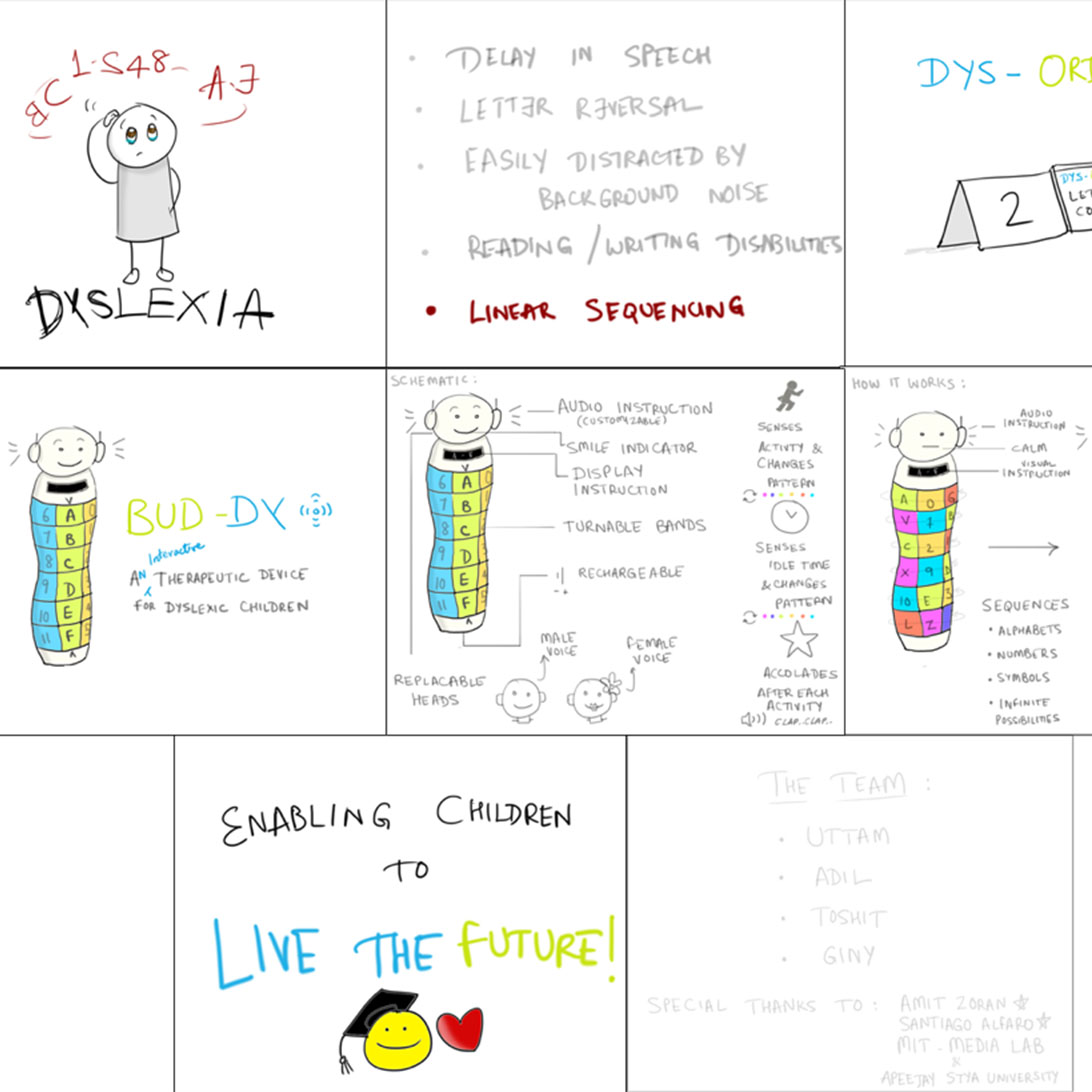 BC 1-S48- A.J
DYSLEXIA
• DELAY IN SPEECH
• LETTER REVERSAL
• EASILY DISTRACTED BY
BACKGROUND NOISE
• READING / WRITING DISABILITIES
• LINEAR SEQUENCING
DYS - ORD
2
DYS-
LET
CO
6 A 0
7 B
8 C
9 D
10 E 4
11 F 5
BUD-DY
AN Interactive THERAPEUTIC DEVICE
FOR DYSLEXIC CHILDREN
SCHEMATIC:
AUDIO INSTRUCTION
(CUSTOMIZABLE)
SMILE INDICATOR
DISPLAY
INSTRUCTION
TURNABLE BANDS
RECHARGEABLE
6 A 0
7 B
8 C
9 D
10 E 4
11 F 5
MALE
VOICE
FEMALE
VOICE
REPLACABLE
HEADS
SENSES
ACTIVTY &
CHANGES
PATTERN
SENSES
IDLE TIME
& CHANGES
PATTERN
ACCOLADES
AFTER EACH
ACTIVITY
CLAP..CLAP..
HOW IT WORKS:
AUDIO
INSTRUCTION
CALM
VISUAL
INSTRUCTION
A O G
V 7 B
C 2
X 9 D
10 E 3
L Z
SEQUENCES
• ALPHABETS
• NUMBERS
• SYMBOLS
• INFINITE
POSSIBILITIES
ENABLING CHILDREN
TO
LIVE THE FUTURE!
THE TEAM :
• UTTAM
• ADIL
• TOSHIT
• GINY
SPECIAL THANKS TO : AMIT ZORAN
SANTIAGO ALFARO
MIT - MEDIA LAB
&
APEEJAY STYA UNIVERSITY